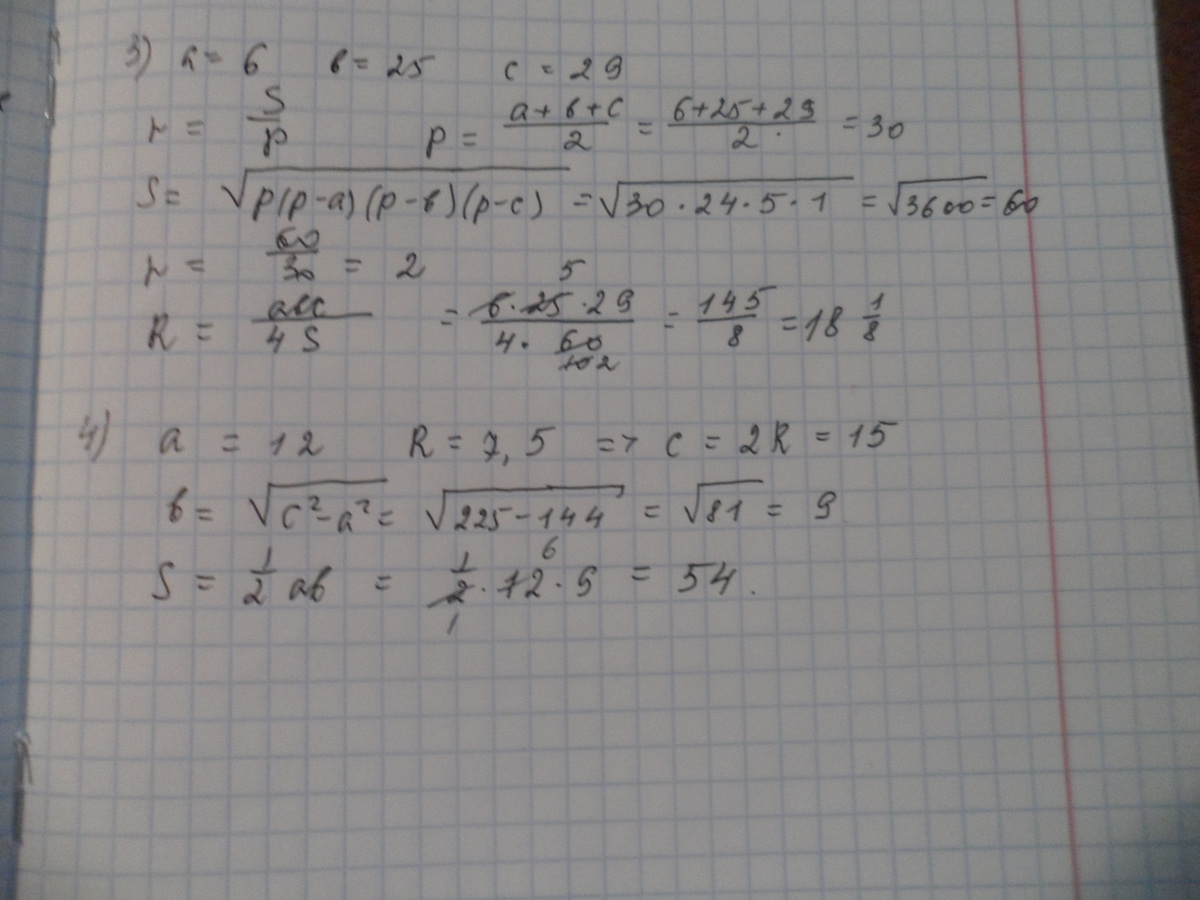 3) a = 6 в = 25 c = 29
r = S/p p = (a + в + c)/2 = (6+25+29)/2 = 30
S = √(p(p-a)(p-в)(p-c)) = √(30·24·5·1) = √3600 = 60
r = 60/30 = 2
R = aвc/4S = (6·25·29)/(4·60) 5 10 2 = 145/8 = 18 1/8
4) a = 12 R = 7,5 => c = 2R = 15
в = √(c²-a²) = √(225-144) = √81 = 9
S = 1/2 aв = 1/2 · 12 · 9 6 1 = 54.